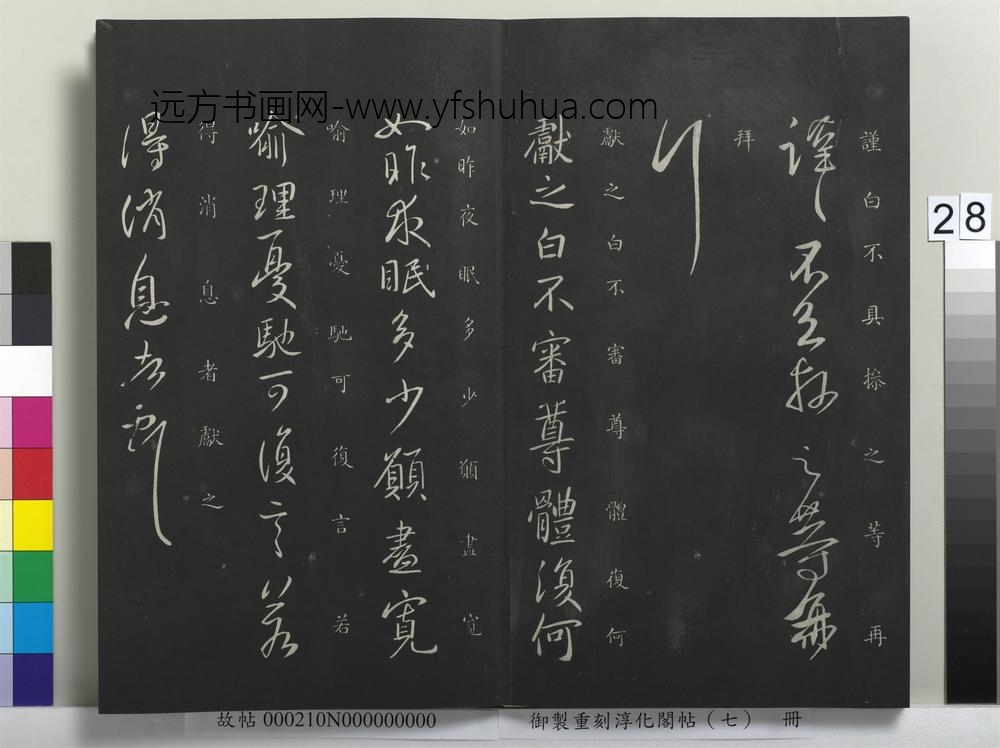 远方书画网-www.yfshuhua.com
28
謹白不具操之等再
謹白不具操之等再
拜
拜
獻之白不審尊體復何
獻之白不審尊體復何
如昨夜眠多少願盡寬
如昨夜眠多少願盡寬
喻理憂馳可復言若
喻理憂馳可復言若
得消息者獻之
得消息者獻之
御製重刻淳化閣帖（七） 冊
故帖 000210N000000000